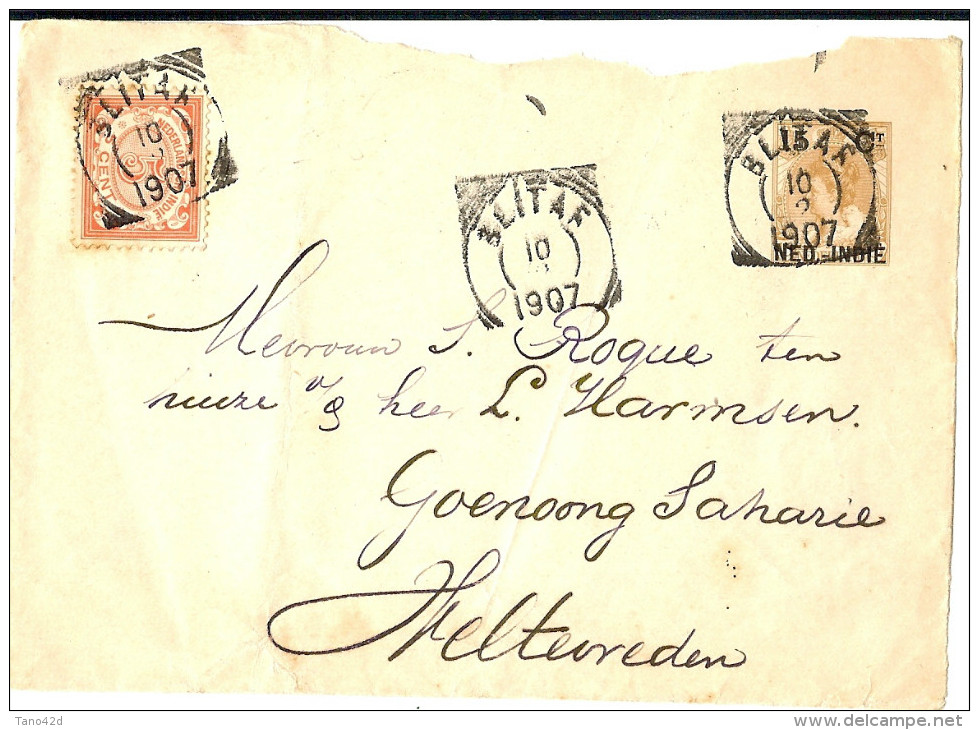 BLITAR
10
1907
NEDERLANDSCH
INDIE
CENT
BLITAR
10
1907
BLITAR
15 CT
10
1907
NED.-INDIE
Mevrouw S. Roque ten
huize v/d heer L. Harmsen.
Goenoong Saharie
Weltevreden
Tano42d
www.delcampe.net